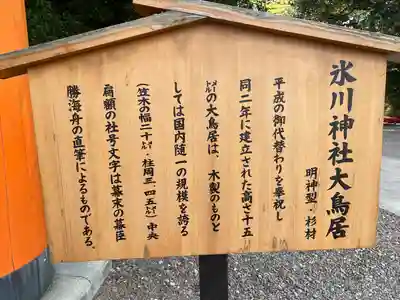 氷川神社大鳥居
明神型・杉材
平成の御代替わりを奉祝し
同二年に建立された高さ十五
㍍の大鳥居は、木製のものと
しては国内随一の規模を誇る
（笠木の幅二十㍍・柱周三・四五㍍）中央
扁額の社号文字は幕末の幕臣
勝海舟の直筆によるものである。